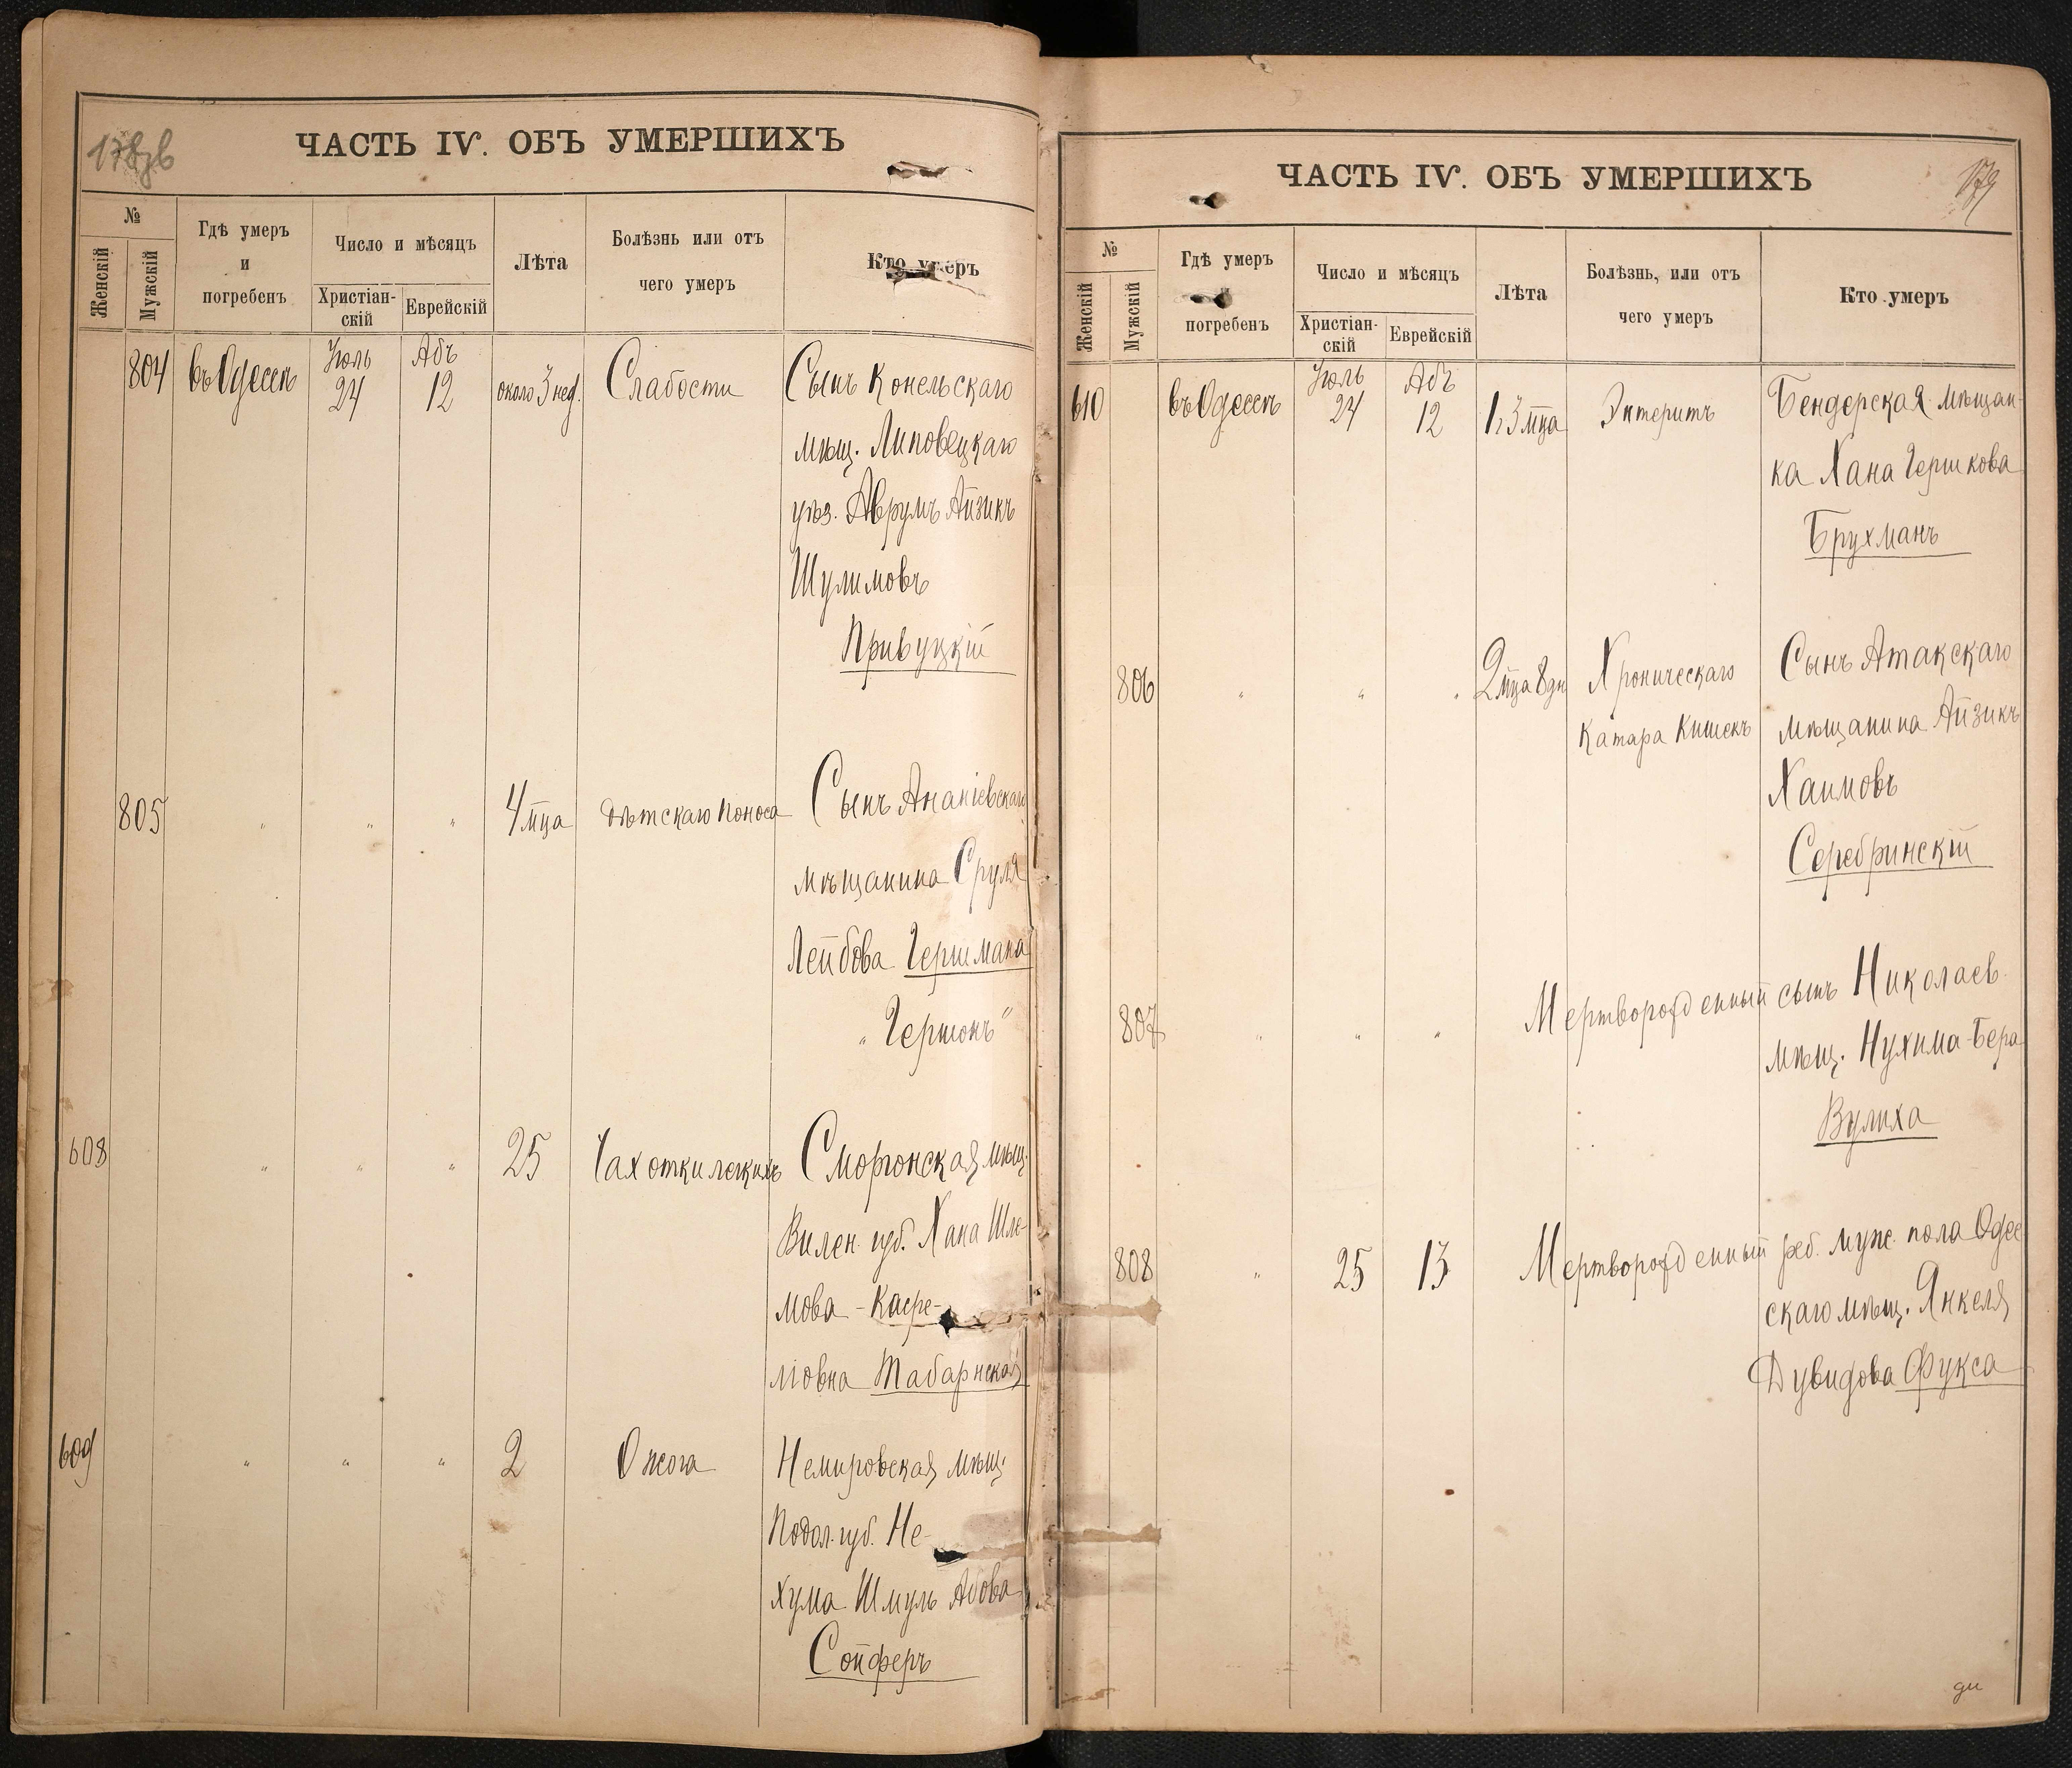 178зв
ЧАСТЬ IV. ОБЪ УМЕРШИХЪ
№
Женскій
Мужскій
Гдѣ умеръ
и
погребенъ
Число и мѣсяцъ
Христіан-
скій
Еврейскій
Лѣта
Болѣзнь или отъ
чего умеръ
Кто умеръ
804 въ Одессѣ Іюль 24 Абъ 12 около 3 нед. Слабости Сынъ Конельскаго
мѣщ. Липовецкаго
уѣз. Аврумъ Айзикъ
Шулимовъ
Привуцкій
805 " " " 4 мца Дѣтскаго поноса Сынъ Ананіевскаго
мѣщанина Сруля
Лейбова Гершмана
"Гершонъ"
608 " " " 25 Чахотки легкихъ Сморгонская мѣщ.
Вилен. губ. Хана Шле-
мова - Касре-
ліовна Табарнская
609 " " " 2 Ожога Немировская мѣщ.
Подол. губ. Не-
хума Шмуль Абова
Сойферъ
179
ЧАСТЬ IV. ОБЪ УМЕРШИХЪ
№
Женскій
Мужскій
Гдѣ умеръ
погребенъ
Число и мѣсяцъ
Христіан-
скій
Еврейскій
Лѣта
Болѣзнь, или отъ
чего умеръ
Кто умеръ
610 въ Одессѣ Іюль 24 Абъ 12 1 г. 3 мца Энтеритъ Бендерская мѣщан-
ка Хана Гершкова
Брухманъ
806 " " " 2 мца 8 дн Хроническаго Сынъ Атакскаго
катара кишекъ мѣщанина Айзикъ
Хаимовъ
Серебринскій
807 " " " Мертворожденный сынъ Николаев.
мѣщ. Нухима-Бера
Вулиха
808 " 25 13 Мертворожденный реб. муж. пола Одес
скаго мѣщ. Янкеля
Дувидова Фукса